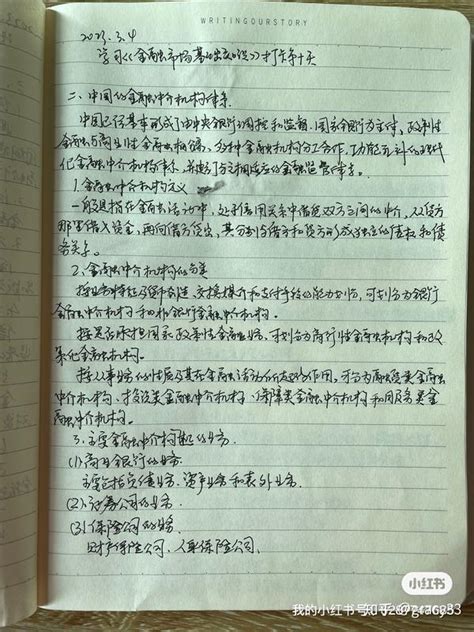 WRITINGOURSTORY
2023.3.4
学习《金融市场基础知识》打卡第十天
二、中国的金融中介机构体系
中国已经基本形成了由中央银行调控和监督,国家银行为主体,政策性
金融与商业性金融相分离,多种金融机构分工合作、功能互补的现代
化金融中介机构体系,并
相适应的金融监管体系。
1.金融中介机构定义
一般是指在金融活动中,处于信用关系中借贷双方之间的中介,从贷方
那里借入资金,再向借方贷出,其分别与借方和贷方形成独立的债权和债
务关系。
2.金融中介机构的分类
按业务特征及
创造、交换媒介和支付手段的能力划分,可划分为银行
金融中介机构和非银行金融中介机构。
按是否承担国家政策性金融业务,可划分为商业性金融机构和政
策性金融机构。
按从事业务的性质及其在金融活动中所起的作用,可分为融投资类金融
中介机构、投资类金融中介机构、保障类金融中介机构和服务类金
融中介机构。
3.主要金融中介机构的业务
(1)商业银行的业务
主要包括负债业务、资产业务和表外业务。
(2)证券公司的业务
(3)保险公司的业务
财产保险公司、人身保险公司、
小红书
我的小红书号
知乎 @grace33